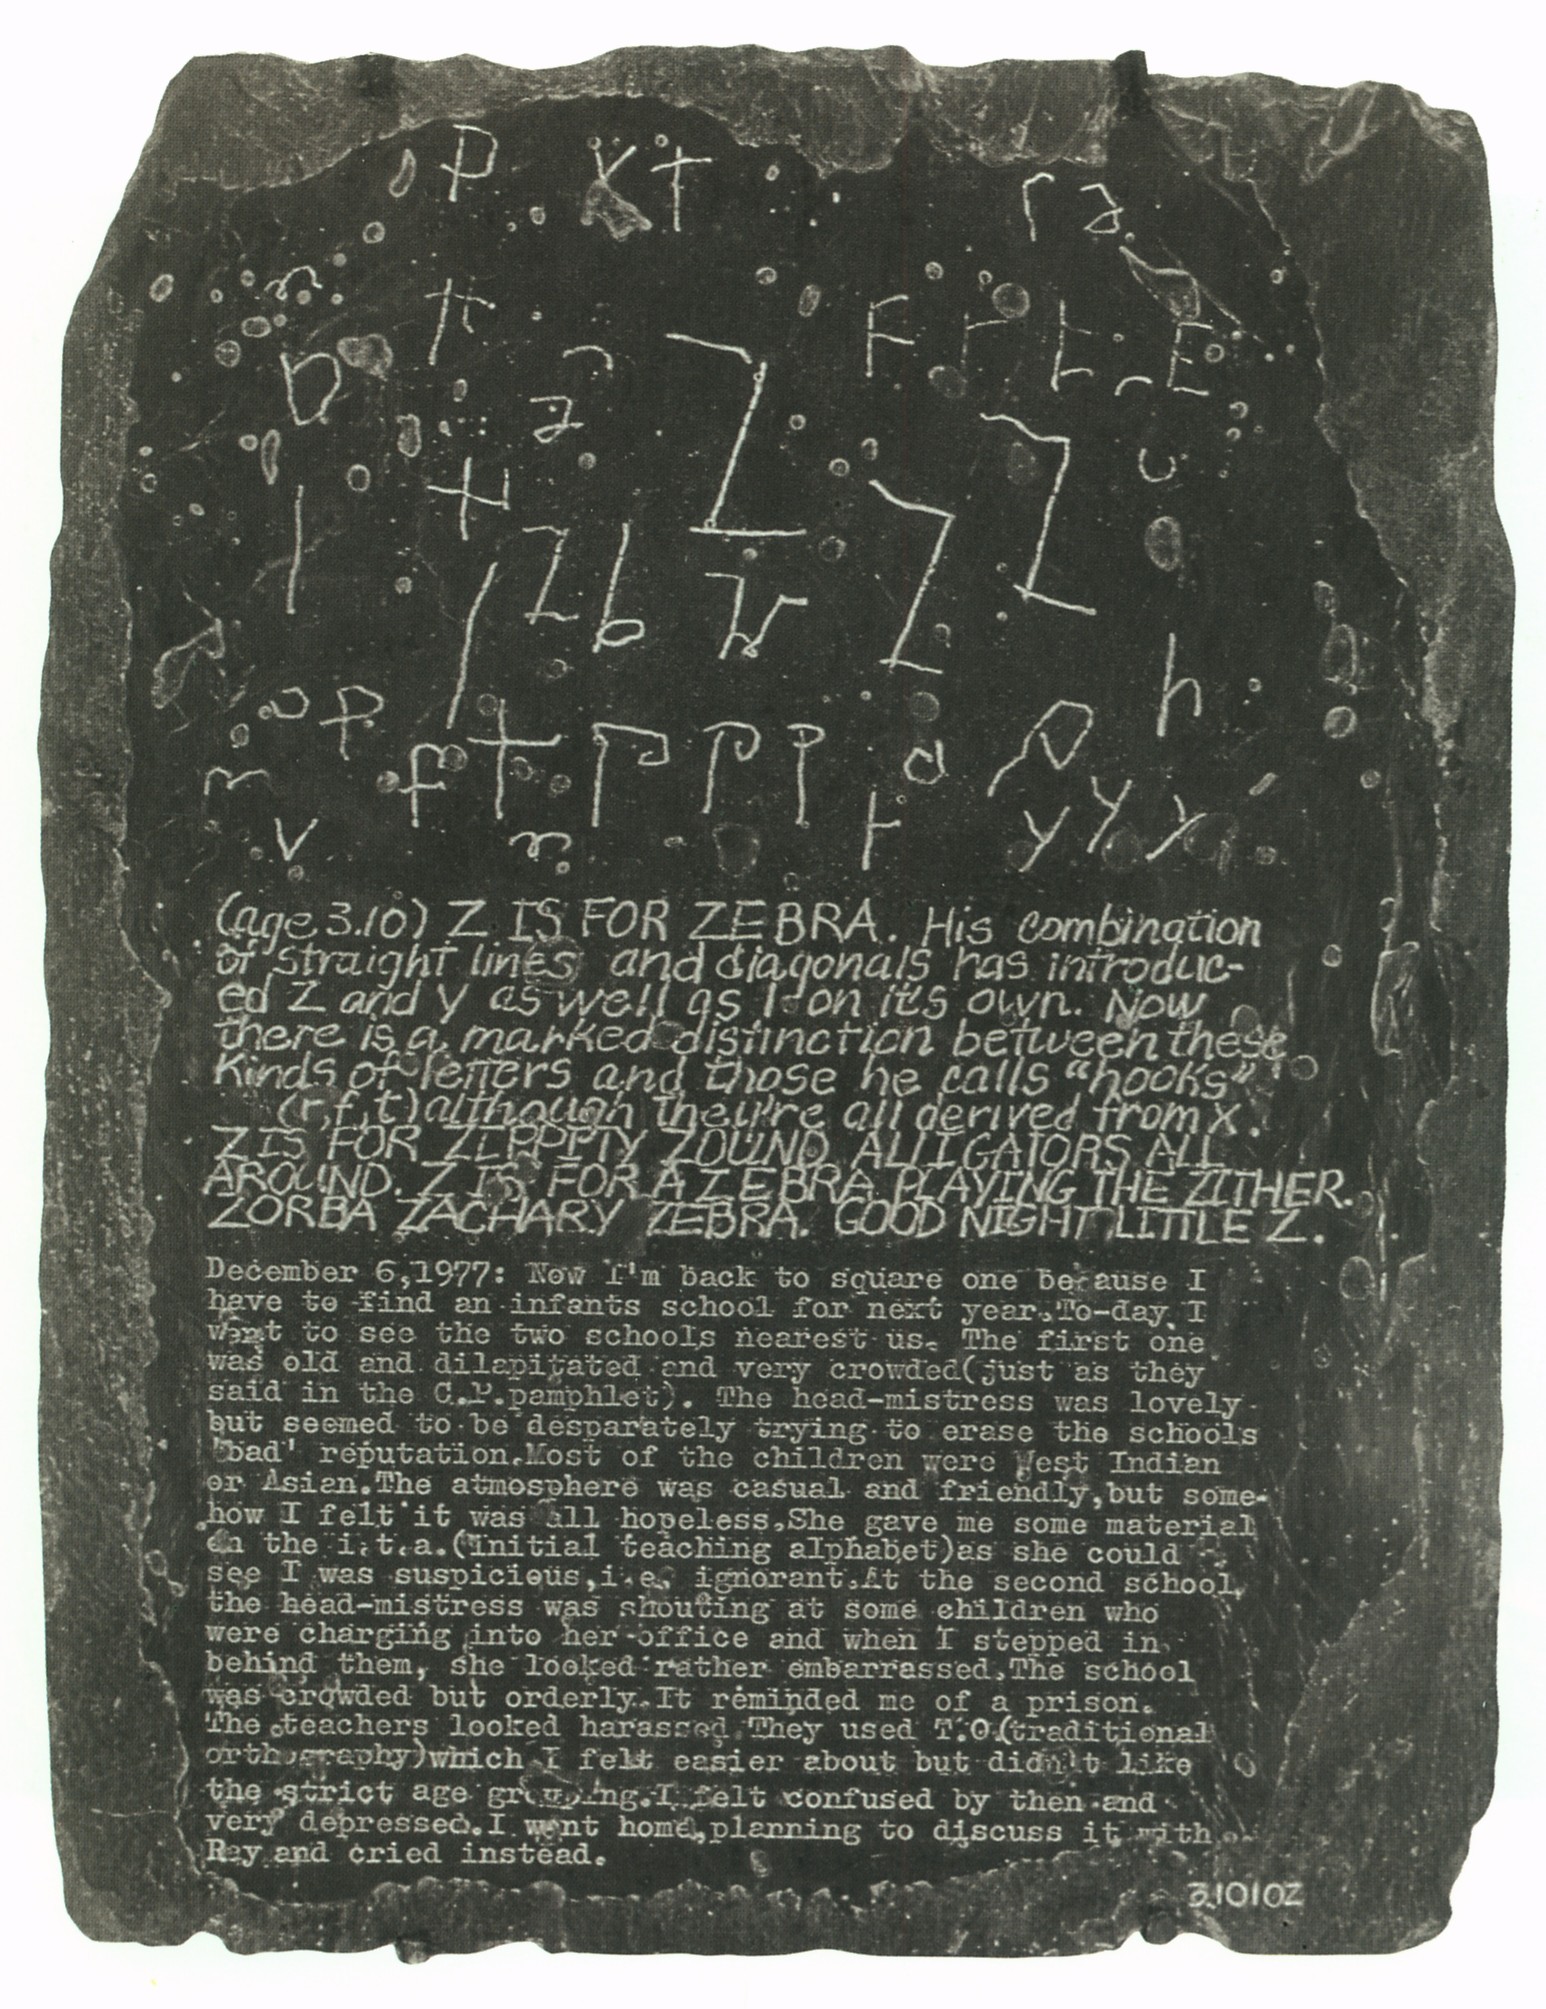 p x t
r a
n
t
F r E E
b
a
Z
Z
u
l
t
Z b
Z
h
o p
m
f t p p p
a
y y y
v
n
t
(age 3.10) Z IS FOR ZEBRA. His combination
of straight lines and diagonals has introduc-
ed Z and y as well as l on it's own. Now
there is a marked distinction between these
kinds of letters and those he calls "hooks"
(r,f,t) although they're all derived from x.
Z IS FOR ZIPPITY ZOUND ALLIGATORS ALL
AROUND. Z IS FOR A ZEBRA PLAYING THE ZITHER.
ZORBA ZACHARY ZEBRA. GOOD NIGHT LITTLE Z.
December 6,1977: Now I'm back to square one because I
have to find an infants school for next year.To-day I
went to see the two schools nearest us. The first one
was old and dilapitated and very crowded(just as they
said in the C.P.pamphlet). The head-mistress was lovely
but seemed to be desparately trying to erase the schools
'bad' reputation.Most of the children were West Indian
or Asian.The atmosphere was casual and friendly,but some-
how I felt it was all hopeless.She gave me some material
on the i.t.a.(Initial teaching alphabet)as she could
see I was suspicious,i.e. ignorant.At the second school,
the head-mistress was shouting at some children who
were charging into her office and when I stepped in
behind them, she looked rather embarrassed.The school
was crowded but orderly.It reminded me of a prison.
The teachers looked harassed.They used T.O.(traditional
orthography)which I felt easier about but didn't like
the strict age grouping.I felt confused by then and
very depressed.I went home,planning to discuss it with
Ray and cried instead.
3.1010Z